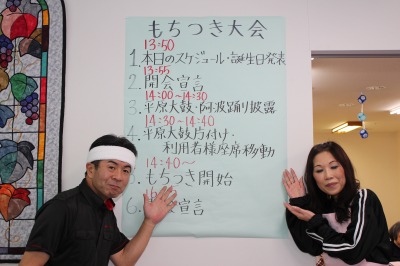 もちつき大会
13:50
1.本日のスケジュール・誕生日発表
13:55
2.開会宣言
14:00~14:30
3.平原太鼓・阿波踊り披露
14:30~14:40
4.平原太鼓片付け・
利用者様座席移動
14:40~
5.もちつき開始
6.
宣言